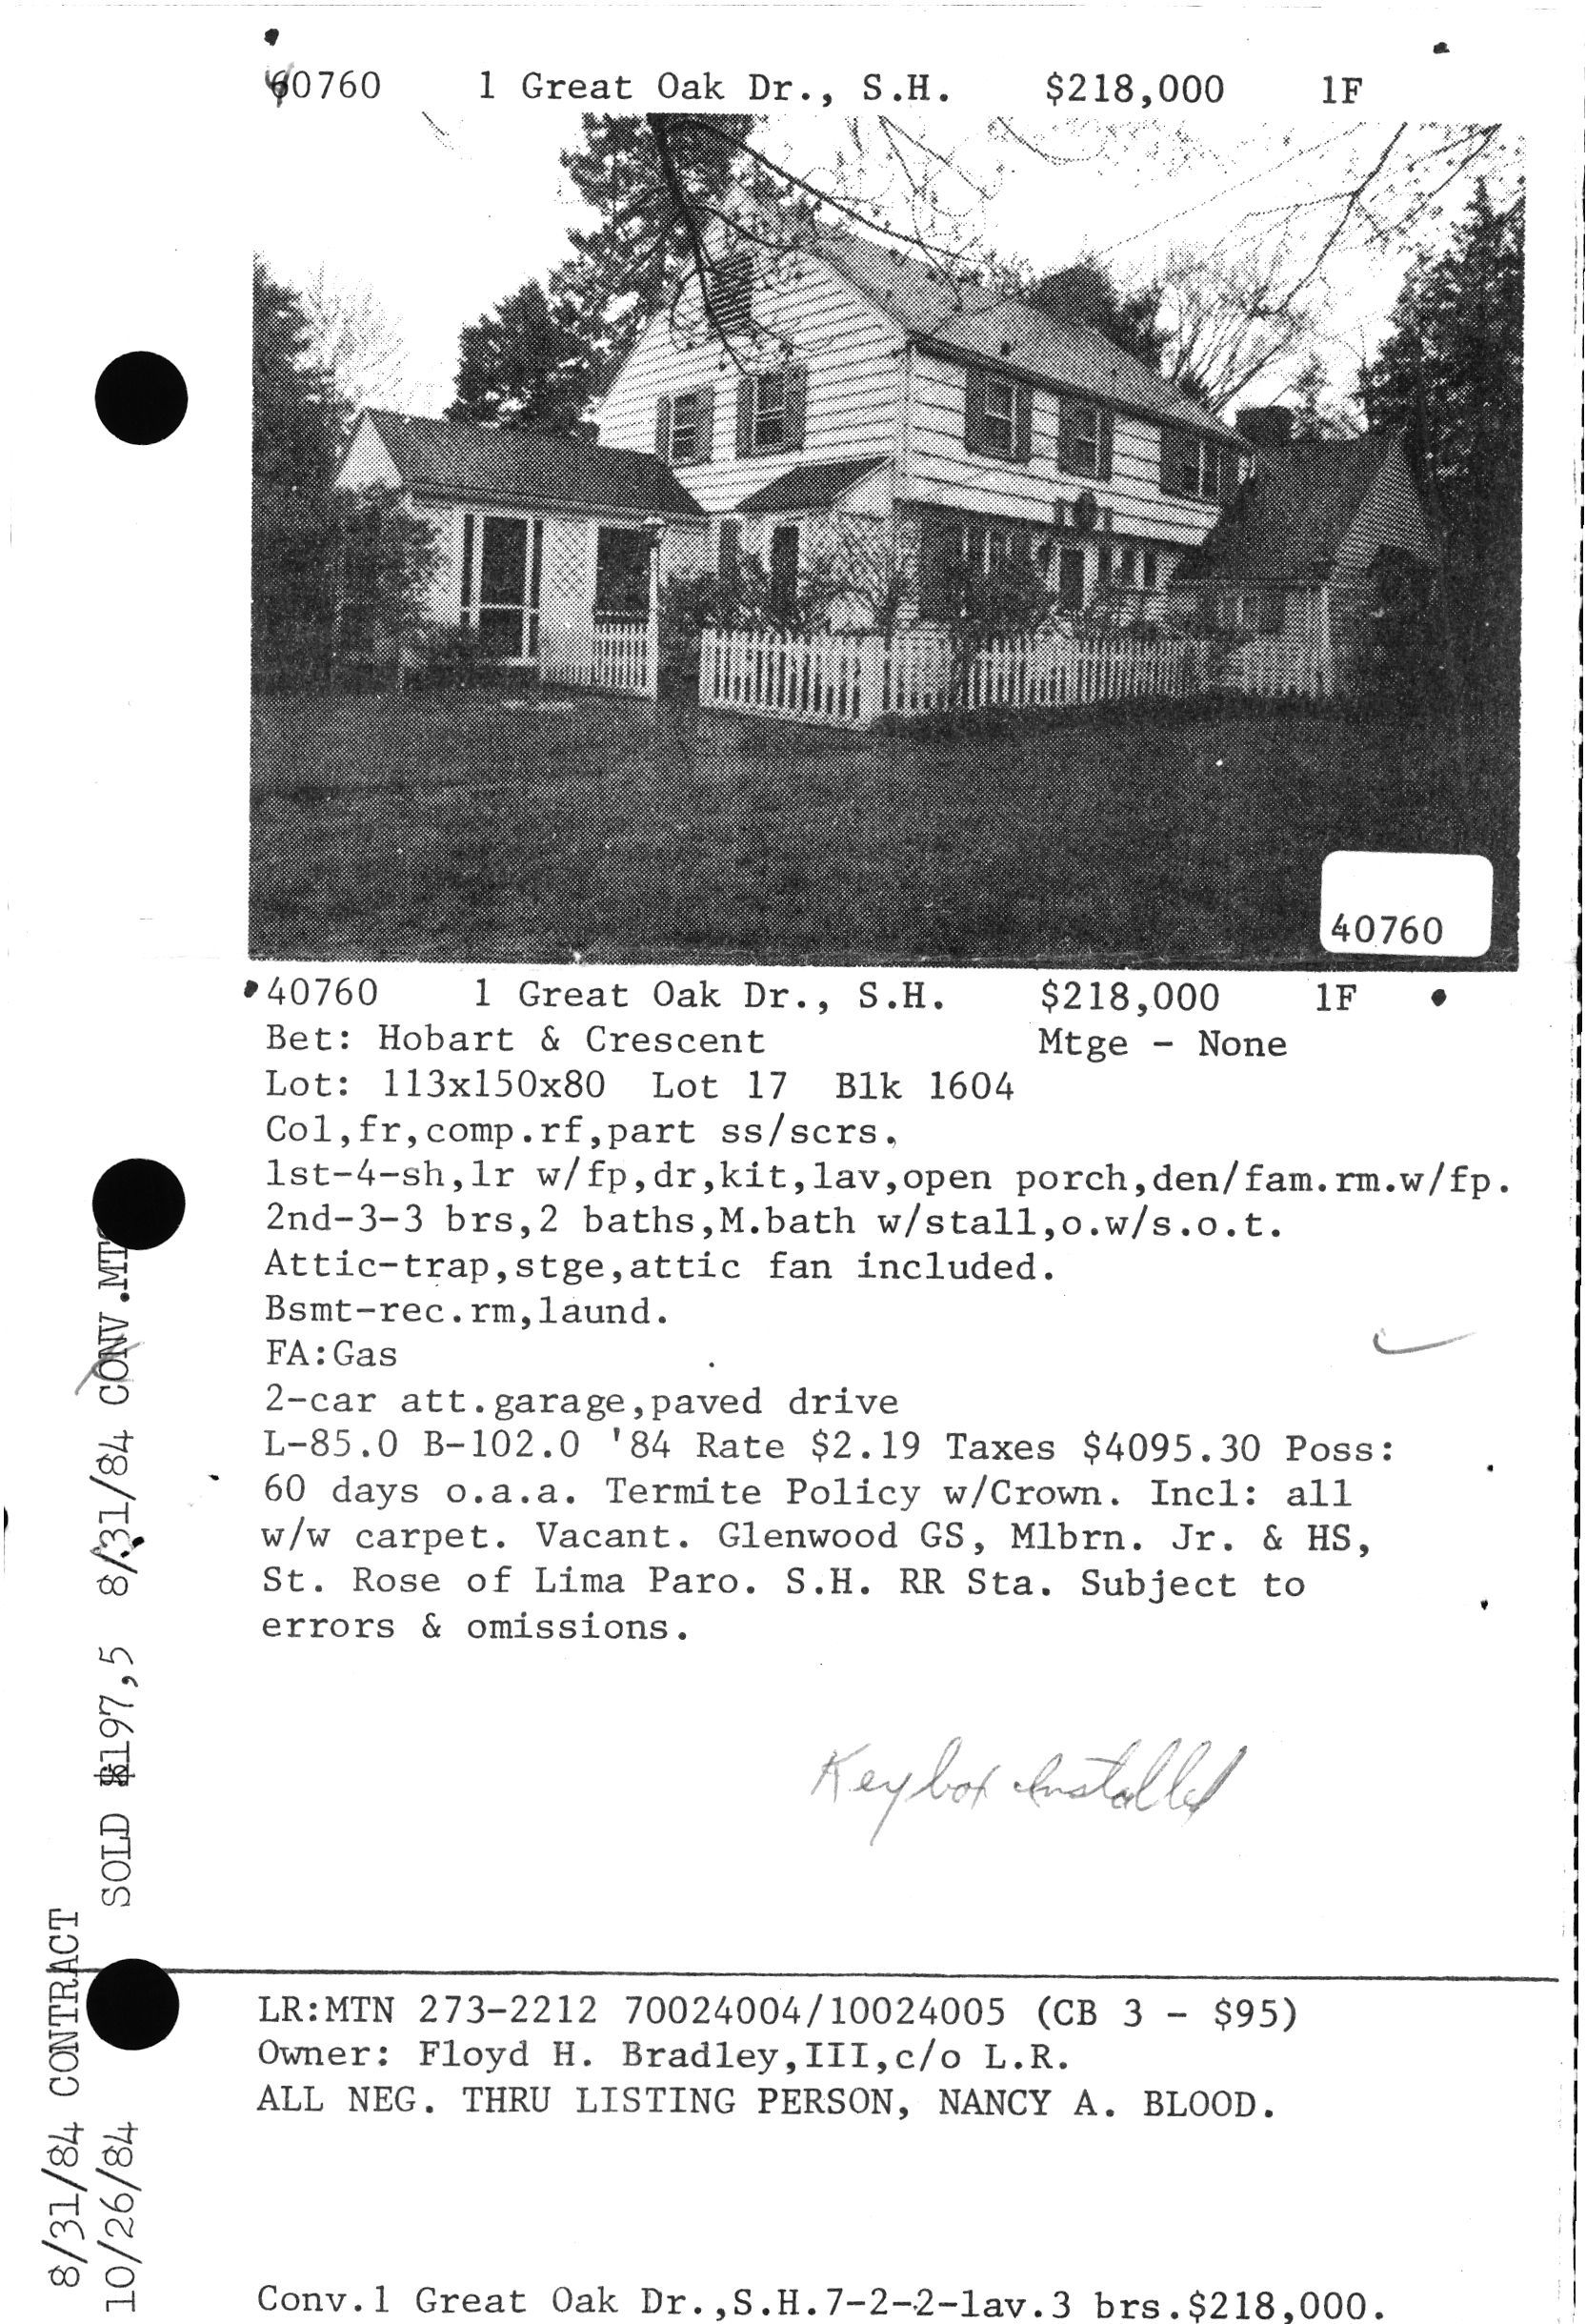 40760 1 Great Oak Dr., S.H. $218,000 1F
40760
40760 1 Great Oak Dr., S.H. $218,000 1F
Bet: Hobart & Crescent Mtge - None
Lot: 113x150x80 Lot 17 Blk 1604
Col,fr,comp.rf,part ss/scrs.
1st-4-sh,lr w/fp,dr,kit,lav,open porch,den/fam.rm.w/fp.
2nd-3-3 brs,2 baths,M.bath w/stall,o.w/s.o.t.
Attic-trap,stge,attic fan included.
Bsmt-rec.rm,laund.
FA:Gas
2-car att.garage,paved drive
L-85.0 B-102.0 '84 Rate $2.19 Taxes $4095.30 Poss:
60 days o.a.a. Termite Policy w/Crown. Incl: all
w/w carpet. Vacant. Glenwood GS, Mlbrn. Jr. & HS,
St. Rose of Lima Paro. S.H. RR Sta. Subject to
errors & omissions.
Keybox Installed
LR:MTN 273-2212 70024004/10024005 (CB 3 - $95)
Owner: Floyd H. Bradley,III,c/o L.R.
ALL NEG. THRU LISTING PERSON, NANCY A. BLOOD.
Conv.1 Great Oak Dr.,S.H.7-2-2-lav.3 brs.$218,000.
8/31/84 CONTRACT
10/26/84 SOLD $197,5 8/31/84 CONV.MT